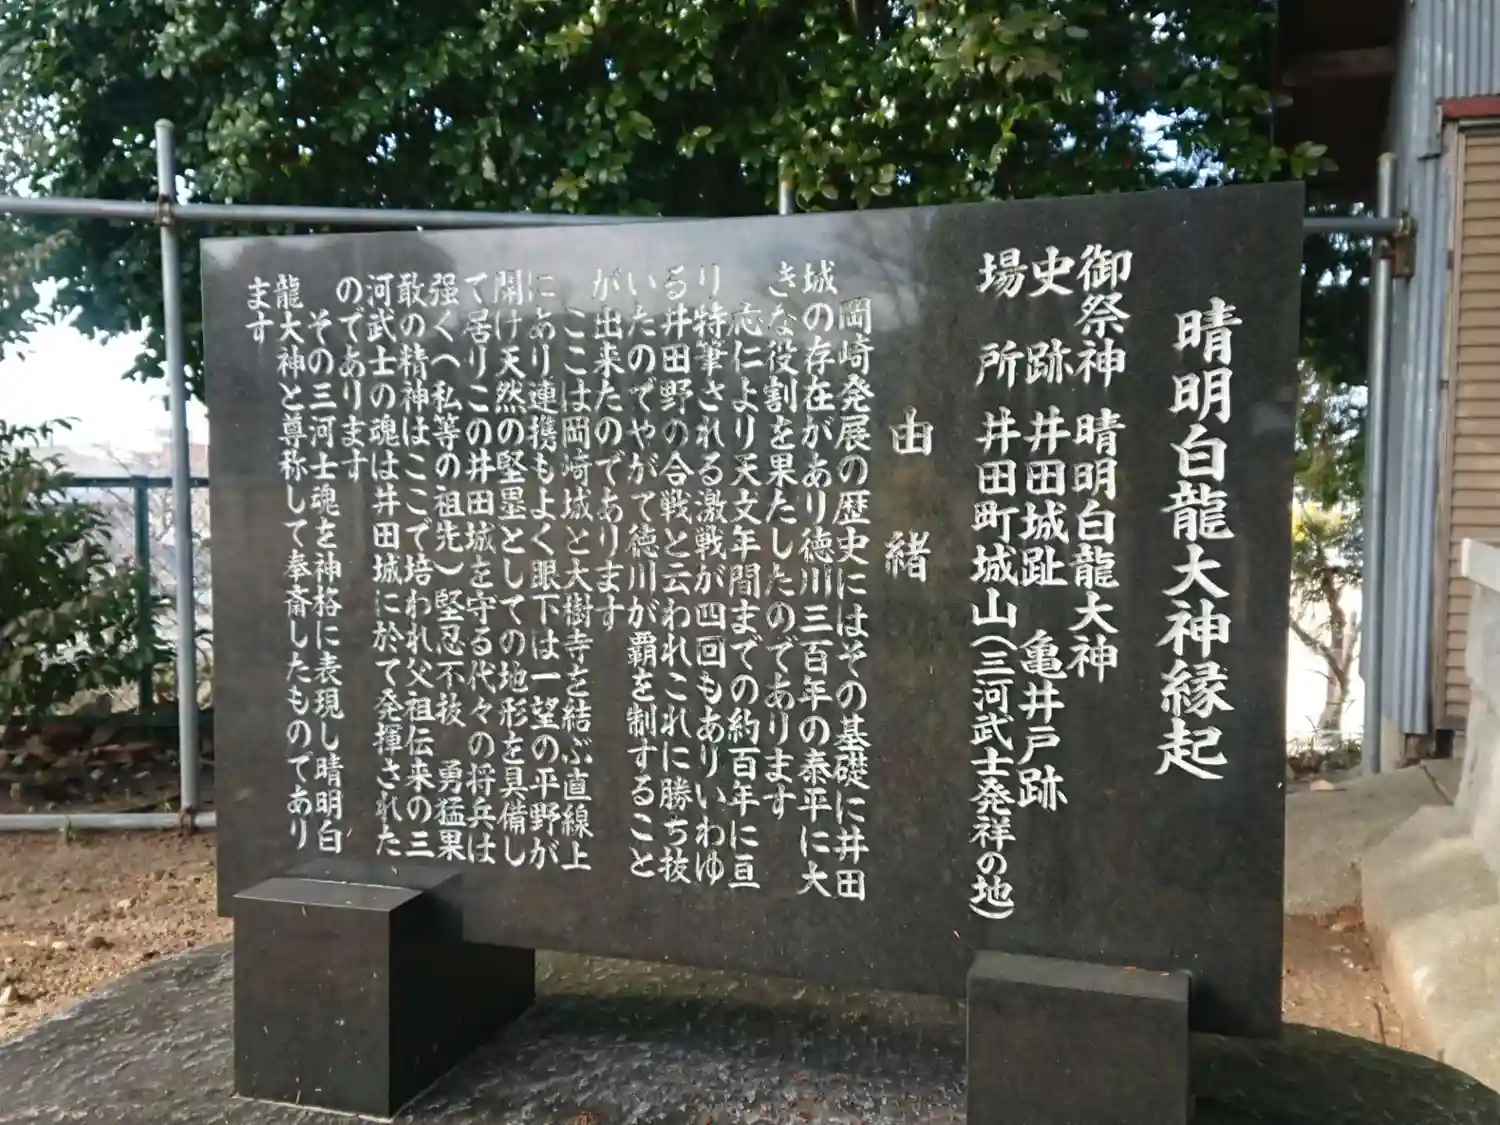 晴明白龍大神縁起
御祭神 晴明白龍大神
史跡 井田城趾 亀井戸跡
場所 井田町城山(三河武士発祥の地)
由緒
岡崎発展の歴史にはその基礎に井田
城の存在があり徳川三百年の泰平に大
きな役割を果たしたのであります
応仁より天文年間までの約百年に亘
り特筆される激戦が四回もありいわゆ
る井田野の合戦と云われこれに勝ち抜
いたのでやがて徳川が覇を制すること
が出来たのであります
ここは岡崎城と大樹寺を結ぶ直線上
にあり連携もよく眼下は一望の平野が
開け天然の堅塁としての地形を具備し
て居りこの井田城を守る代々の将兵は
强く(私等の祖先)堅忍不抜 勇猛果
敢の精神はここで培われ父祖伝来の三
河武士の魂は井田城に於て発揮された
のであります
その三河士魂を神格に表現し晴明白
龍大神と尊称して奉斎したものであり
ます